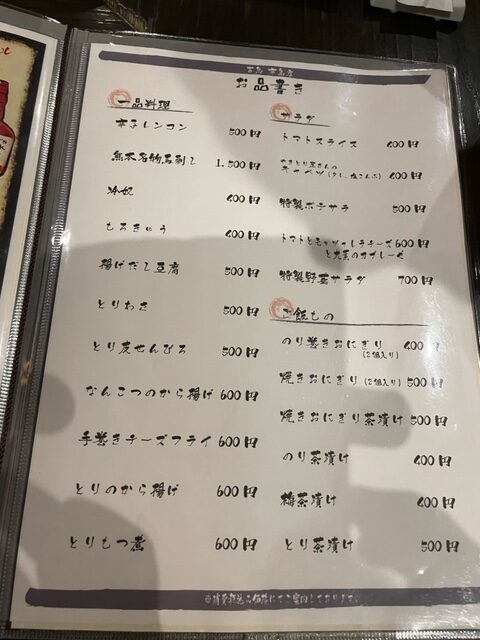 お品書き
一品料理
辛子レンコン 500円
熊本名物馬刺し 1,500円
冷奴 400円
もろきゅう 400円
揚げだし豆腐 500円
とりわさ 500円
とり皮せんべい 500円
なんこつのから揚げ 600円
手巻きチーズフライ 600円
とりのから揚げ 600円
とりもつ煮 600円
サラダ
トマトスライス 400円
やきとり屋さんの
キャベツ 400円
特製ポテサラ 500円
トマトとモッツァレラチーズ 600円
と大葉のカプレーゼ
特製野菜サラダ 700円
ご飯もの
のり巻きおにぎり 400円
(2個入り)
焼きおにぎり (2個入り) 500円
焼きおにぎり茶漬け 500円
のり茶漬け 400円
梅茶漬け 400円
とり茶漬け 500円